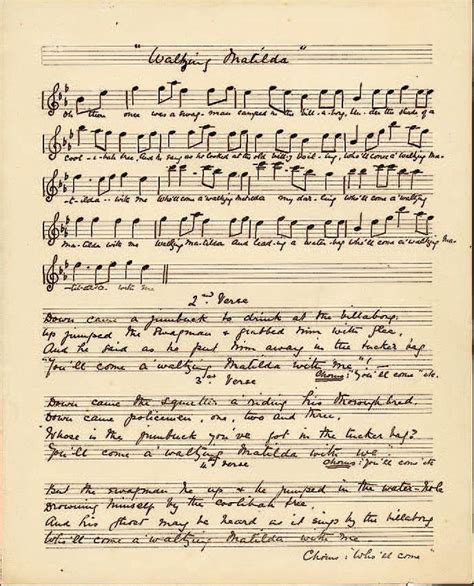 "Waltzing Matilda"
Oh there once was a swag-man camped in the bill-a-bong, Under the shade of a
Cool-i-bah tree, And he sang as he looked at the old billy boiling, Who'll come a'waltzing Ma-
-tilda-- with me Who'll come a'waltzing Matilda my dar-ling Who'll come a'waltzing
Ma-tilda with me Waltzing Matilda and lead-ing a water-bag Who'll come a'waltzing Ma-
-tilda. with me
2nd Verse
Down came a jumbuck to drink at the billabong.
Up jumped the Swagman & grabbed him with glee,
And he said as he put him away in the tucker bag
"You'll come a waltzing Matilda with me"!
Chorus: "You'll come etc.
3rd Verse
Down came the squatter a riding his thoroughbred
Down came policemen, one, two and three,
"Whose is the jumbuck you've got in the tucker bag?
You'll come a'waltzing Matilda with we.
Chorus: "You'll come etc
4th Verse
But the swagman he up & he jumped in the water-hole
Drowning himself by the coolibah tree,
And his ghost may be heard as it sings by the billabong
Who'll come a'waltzing Matilda with me
Chorus: 'Who'll come"